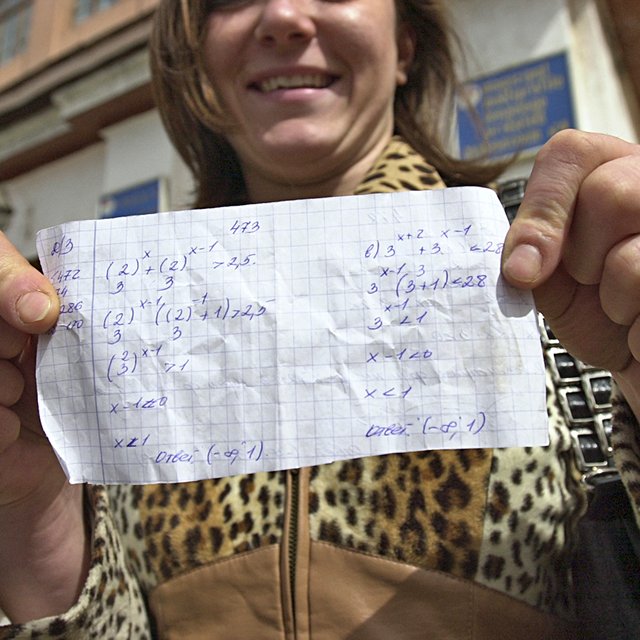 473
Д/З
472
(2/3)^x + (2/3)^(x-1) > 2,5
(2/3)^(x-1) ((2/3)^-1 + 1) > 2,5
(2/3)^(x-1) > 1
x-1<0
x<1
Ответ: (-∞; 1)
в) 3^(x+2) + 3^(x-1) < 28
3^(x-1) (3^3+1) < 28
3^(x-1) < 1
x-1<0
x<1
Ответ: (-∞; 1)